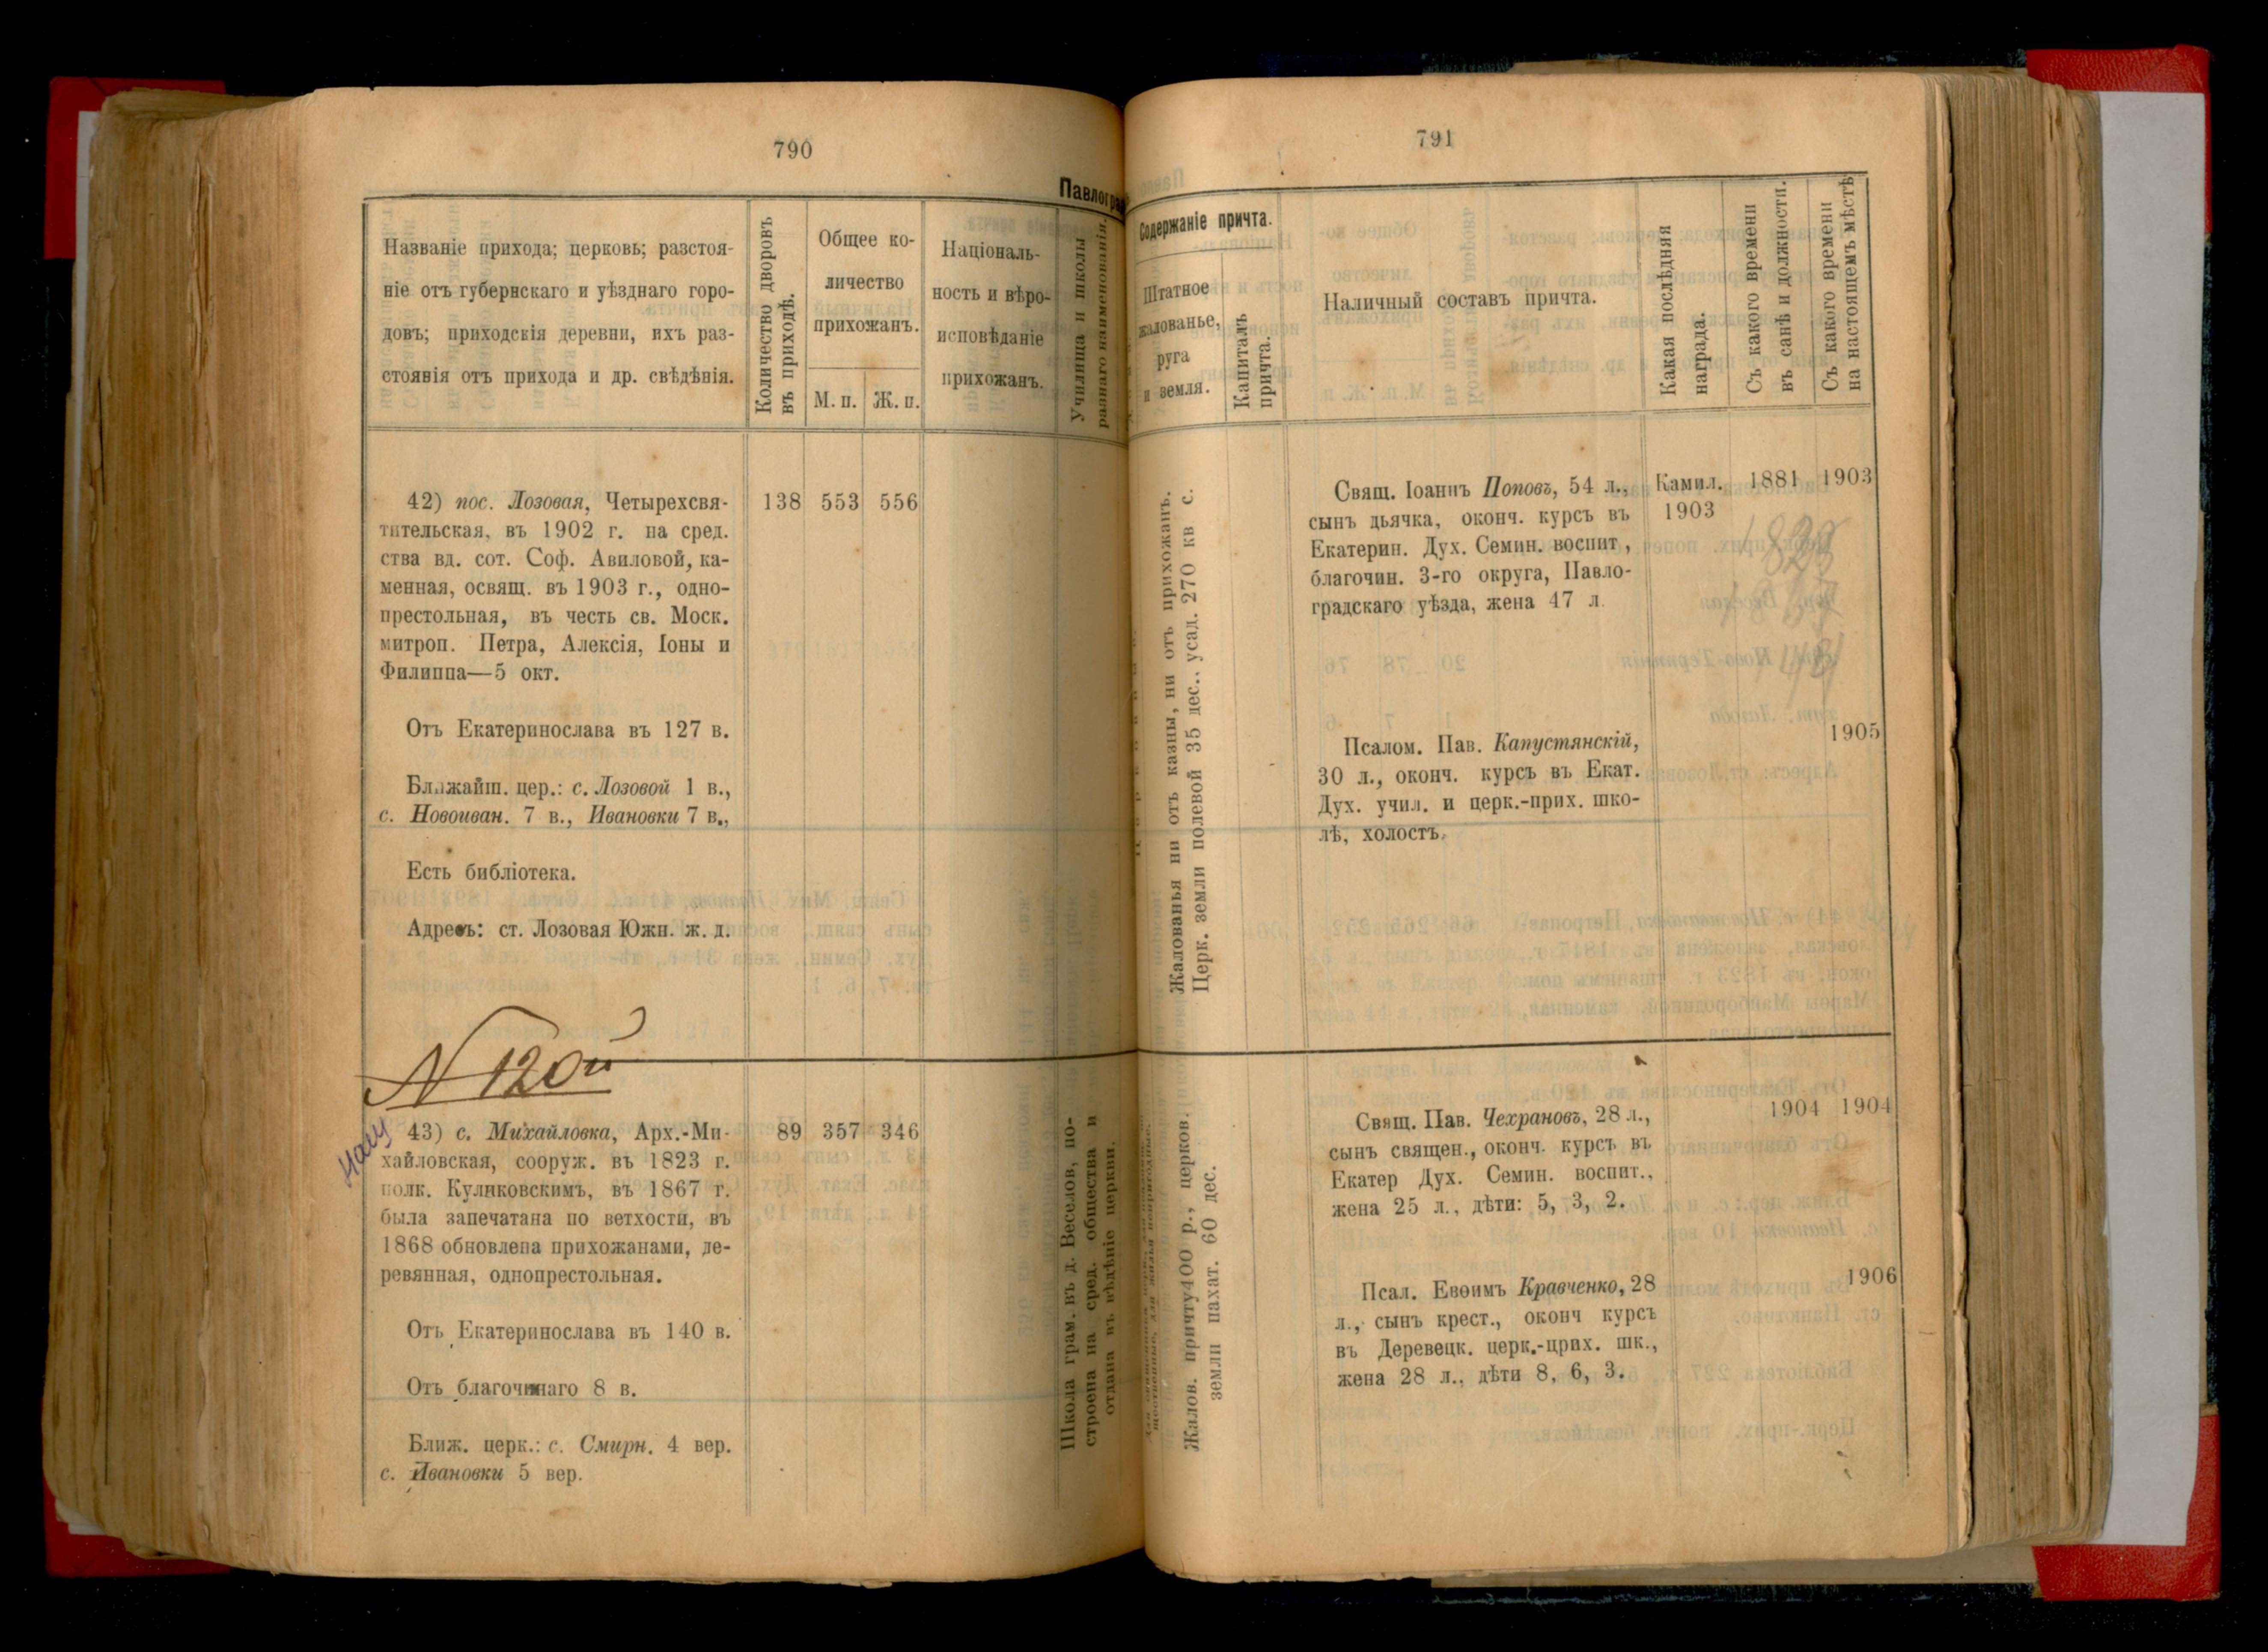 790
Павлоград
Названіе прихода; церковь; разстоя-
ніе отъ губернскаго и уѣзднаго горо-
довъ; приходскія деревни, ихъ раз-
стоянія отъ прихода и др. свѣдѣнія.
Количество дворовъ
въ приходѣ.
Общее ко-
личество
прихожанъ.
М. п. Ж. п.
Націоналъ-
ность и вѣро-
исповѣданіе
прихожанъ.
Училища и школы
разнаго наименованія.
42) пос. Лозовая, Четырехсвя-
тительская, въ 1902 г. на сред.
ства вд. сот. Соф. Авиловой, ка-
менная, освящ. въ 1903 г., одно-
престольная, въ честь св. Моск.
митроп. Петра, Алексія, Іоны и
Филиппа—5 окт.
138 553 556
Отъ Екатеринослава въ 127 в.
Ближайш. цер.: с. Лозовой 1 в.,
с. Новоиван. 7 в., Ивановки 7 в.,
Есть библіотека.
Адресъ: ст. Лозовая Южн. ж. д.
N 120й
43) с. Михайловка, Арх.-Ми-
хайловская, сооруж. въ 1823 г.
полк. Куликовскимъ, въ 1867 г.
была запечатана по ветхости, въ
1868 обновлена прихожанами, де-
ревянная, однопрестольная.
89 357 346
Отъ Екатеринослава въ 140 в.
Отъ благочиннаго 8 в.
Ближ. церк.: с. Смирн. 4 вер.
с. Ивановки 5 вер.
Школа грам. въ д. Веселов, по-
строена на сред. общества и
отдана въ вѣдѣніе церкви.
791
Содержаніе причта.
Штатное
жалованье,
руга
и земля.
Капиталъ
причта.
Наличный составъ причта.
Какая послѣдняя
награда.
Съ какого времени
въ санѣ и должности.
Съ какого времени
на настоящемъ мѣстѣ
Жалованья ни отъ казны, ни отъ прихожанъ.
Церк. земли полевой 35 дес., усад. 270 кв с.
Свящ. Іоаннъ Поповъ, 54 л.,
сынъ дьячка, оконч. курсъ въ
Екатерин. Дух. Семин. воспит,
благочин. 3-го округа, Павло-
градскаго уѣзда, жена 47 л.
Камил.
1903
1881 1903
Псалом. Пав. Капустянскій,
30 л., оконч. курсъ въ Екат.
Дух. учил. и церк.-прих. шко-
лѣ, холостъ.
1905
Жалов. причту 400 р., церков.
земли пахат. 60 дес.
Свящ. Пав. Чехрановъ, 28 л.,
сынъ священ., оконч. курсъ въ
Екатер Дух. Семин. воспит.,
жена 25 л., дѣти: 5, 3, 2.
1904 1904
Псал. Евѳимъ Кравченко, 28
л., сынъ крест., оконч курсъ
въ Деревецк. церк.-прих. шк.,
жена 28 л., дѣти 8, 6, 3.
1906